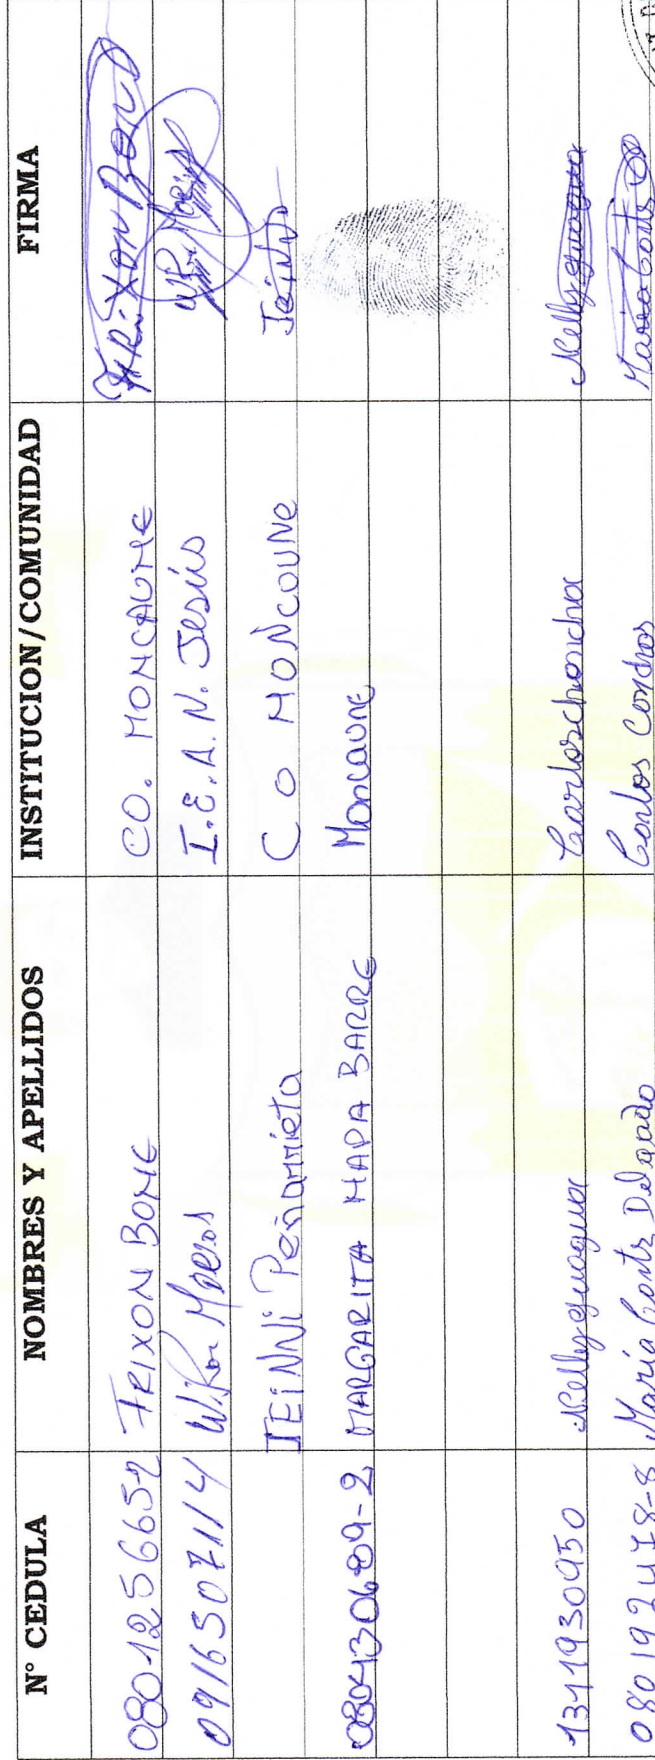 N° CEDULA NOMBRES Y APELLIDOS INSTITUCION/COMUNIDAD FIRMA
0801256652 FRIXON BONE CO. MONCAUNE FRIXON BONE
0916507114 I.E.A.N. Jesús
JEINNi Peñarrieta C O MONCOUNE Jeinni
MARGARITA MAPA BARRE Moncaune
1311930950 Carlos
080192478-8 María Cortz Delgado Carlos Conchas María Cortz